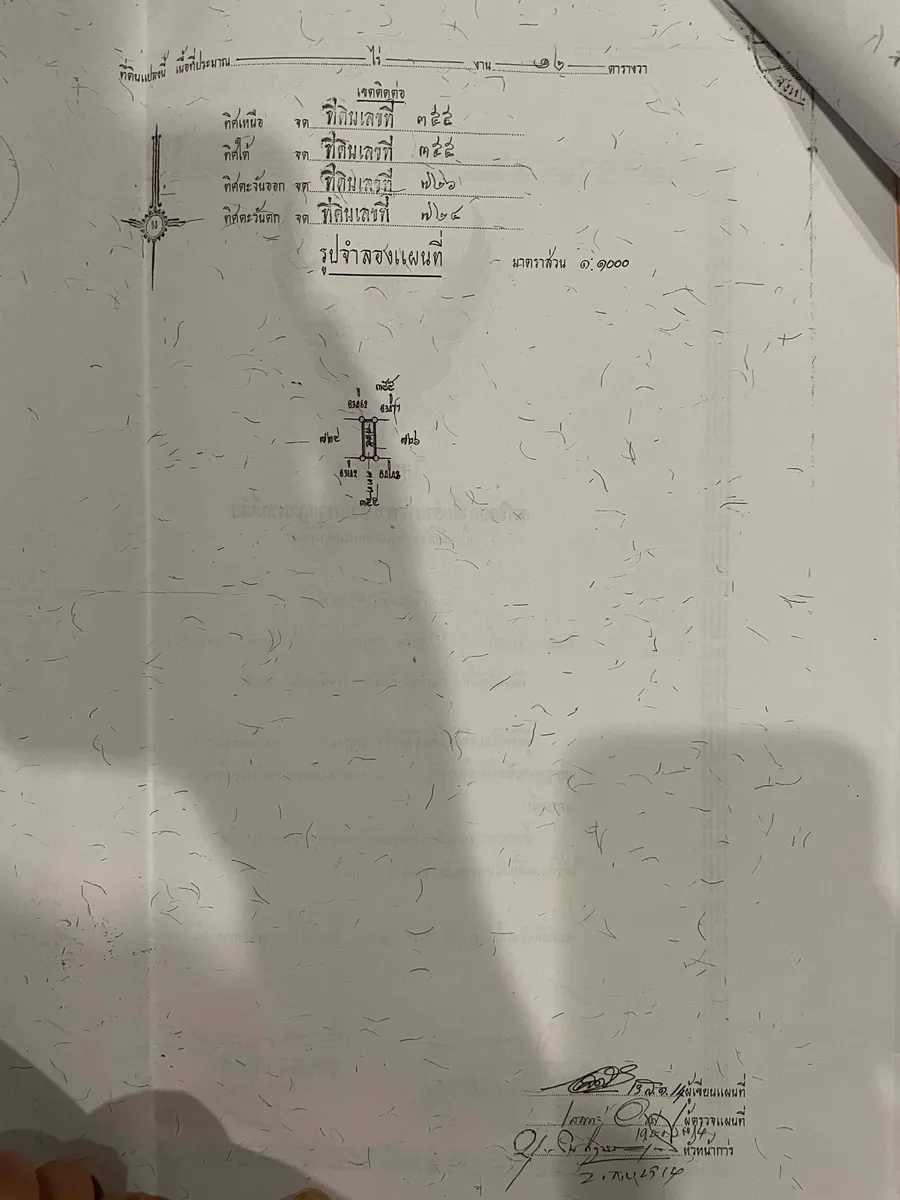 ที่ดินแปลงนี้ เนื้อที่ประมาณ ไร่ งาน ๑๒ ตารางวา
เขตติดต่อ
ทิศเหนือ จด ที่ดินเลขที่ ๓๕๕
ทิศใต้ จด ที่ดินเลขที่ ๓๕๕
ทิศตะวันออก จด ที่ดินเลขที่ ๗๒๖
ทิศตะวันตก จด ที่ดินเลขที่ ๗๒๔
รูปจำลองแผนที่ มาตราส่วน ๑:๑๐๐๐
๓๕๕
๗๒๔ ๗๒๕ ๗๒๖
๓๕๕
ผู้เขียนแผนที่
ผู้ตรวจแผนที่
หัวหน้าการ